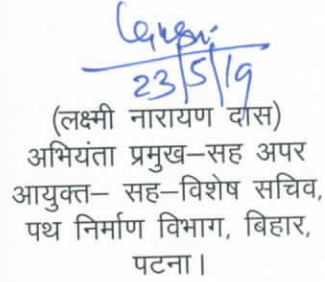 23/5/19
(लक्ष्मी नारायण दास)
अभियंता प्रमुख–सह अपर
आयुक्त– सह–विशेष सचिव,
पथ निर्माण विभाग, बिहार,
पटना।